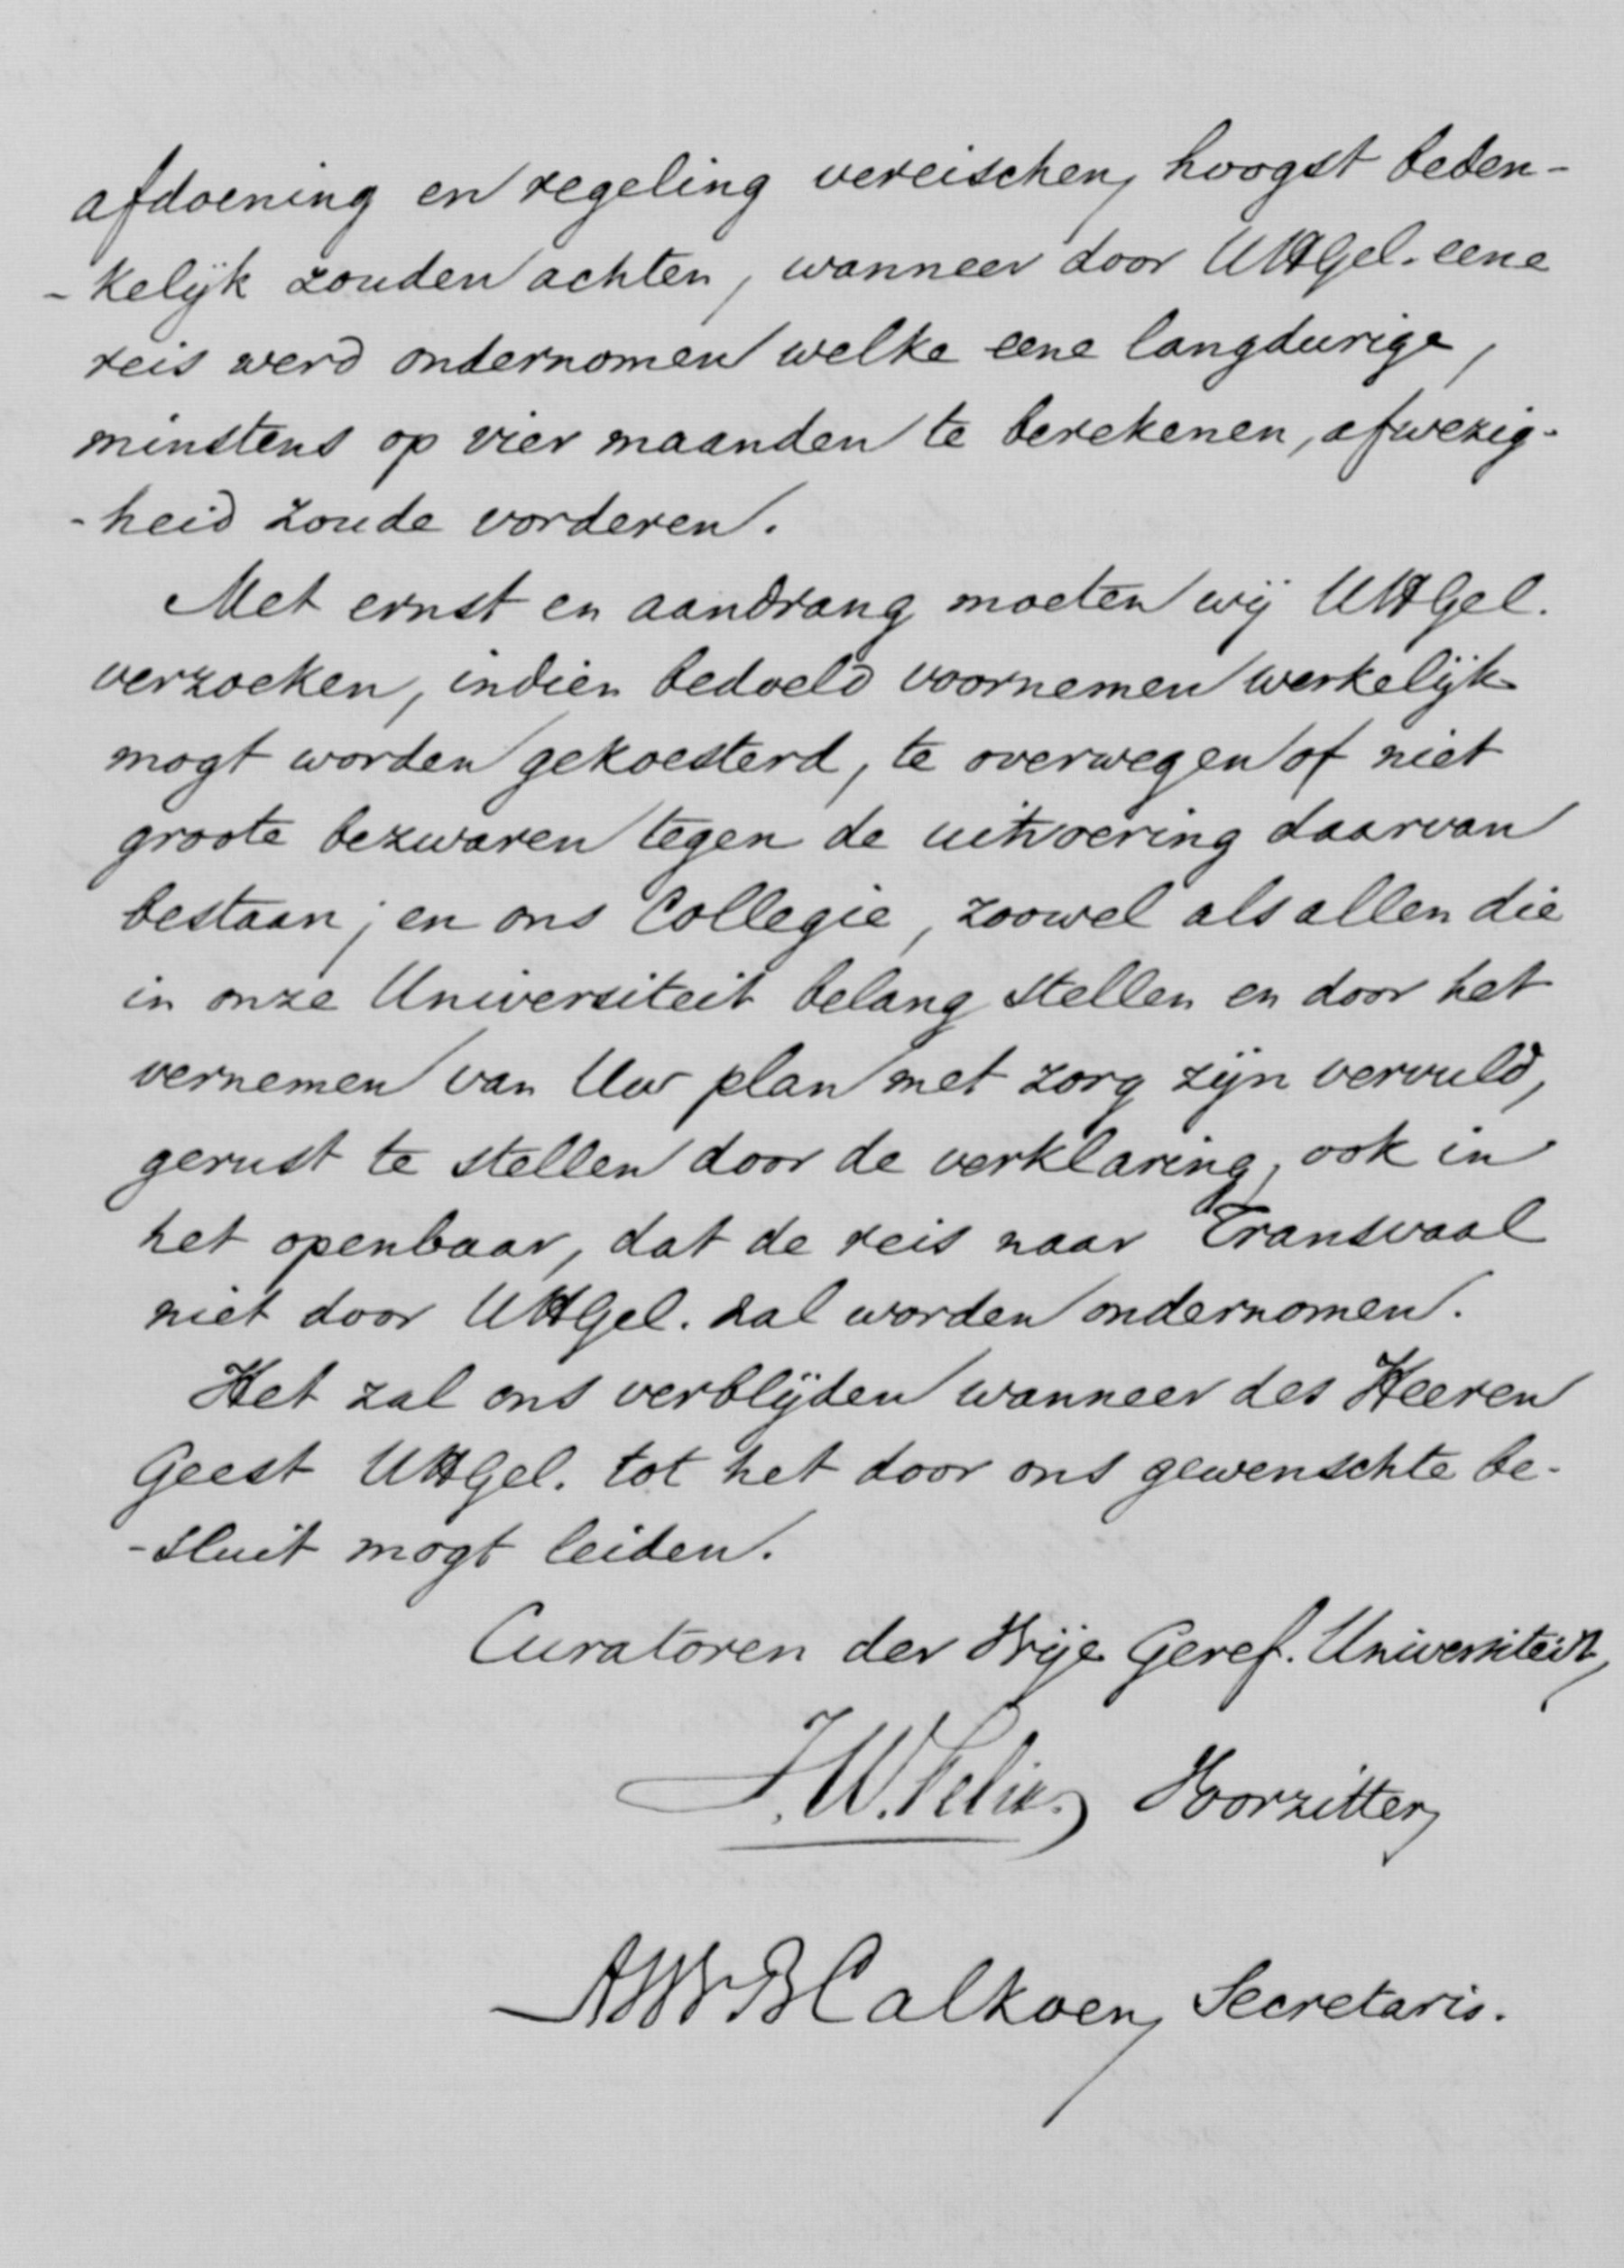 afdoening en regeling vereischen, hoogst beden-
-kelijk zouden achten, wanneer door UHGel. eene
reis werd ondernomen welke eene langdurige,
minstens op vier maanden te berekenen, afwezig-
-heid zoude vorderen.
Met ernst en aandrang moeten wij UHGel.
verzoeken, indien bedoeld voornemen werkelijk
mogt worden gekoesterd, te overwegen of niet
groote bezwaren tegen de uitvoering daarvan
bestaan; en ons Collegie, zoowel als allen die
in onze Universiteit belang stellen en door het
vernemen van Uw plan met zorg zijn vervuld,
gerust te stellen door de verklaring, ook in
het openbaar, dat de reis naar Transvaal
niet door UHGel. zal worden ondernomen.
Het zal ons verblijden wanneer des Heeren
Geest UHGel. tot het door ons gewenschte be-
-sluit mogt leiden.
Curatoren der Vrije Geref. Universiteit,
J.W. Felix, Voorzitter,
Calkoen, Secretaris.